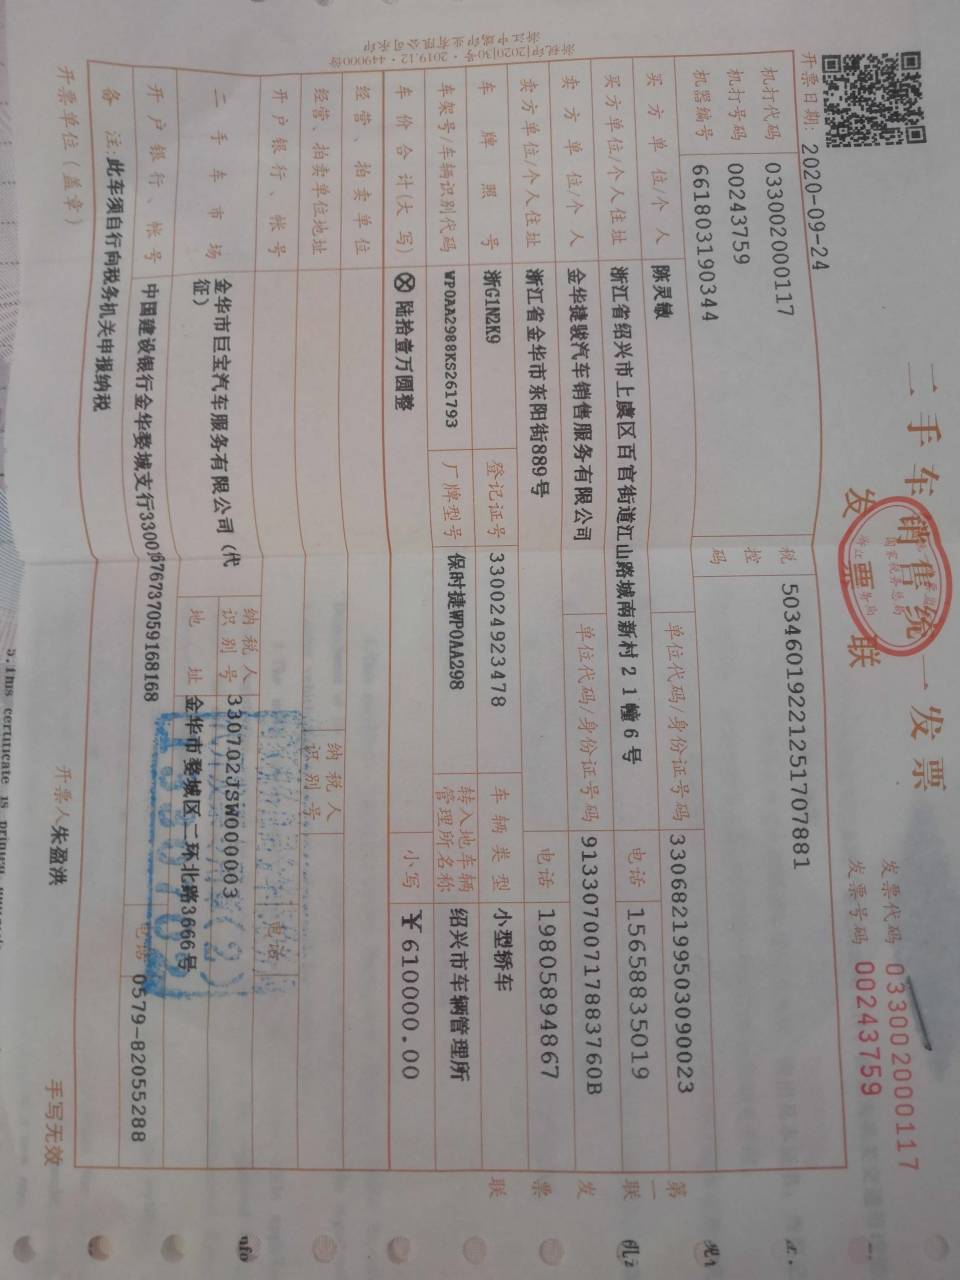 二手车销售统一发票
发票联
发票代码 033002000117
发票号码 00243759
开票日期: 2020-09-24
机打代码 033002000117
机打号码 00243759
机器编号 661803190344
税控码 50346019221251707881
买方单位/个人 陈灵敏 单位代码/身份证号码 330682199503090023
买方单位/个人住址 浙江省绍兴市上虞区百官街道江山路城南新村21幢6号 电话 15658835019
卖方单位/个人 金华捷骏汽车销售服务有限公司 单位代码/身份证号码 91330700717883760B
卖方单位/个人住址 浙江省金华市东阳街889号 电话 19805894867
车牌照号 浙G1N2K9 登记证号 330024923478 车辆类型 小型轿车
车架号/车辆识别代码 WP0AA2988KS261793 厂牌型号 保时捷WP0AA298 转入地车辆管理所名称 绍兴市车辆管理所
车价合计(大写) ⊗ 陆拾壹万圆整 小写 ￥610000.00
经营、拍卖单位
经营、拍卖单位地址 纳税人识别号
开户银行、帐号 电话
二手车市场 金华市巨宝汽车服务有限公司（代征） 纳税人识别号 330702JSW000003
地址 金华市婺城区二环北路3666号
开户银行、帐号 中国建设银行金华婺城支行33001676737059168168 电话 0579-82055288
备注: 此车须自行向税务机关申报纳税
开票单位(盖章) 开票人 朱盈洪 手写无效
第一联 发票联
浙税印[2020]30号·2019.12·449000份
5.This certificate is